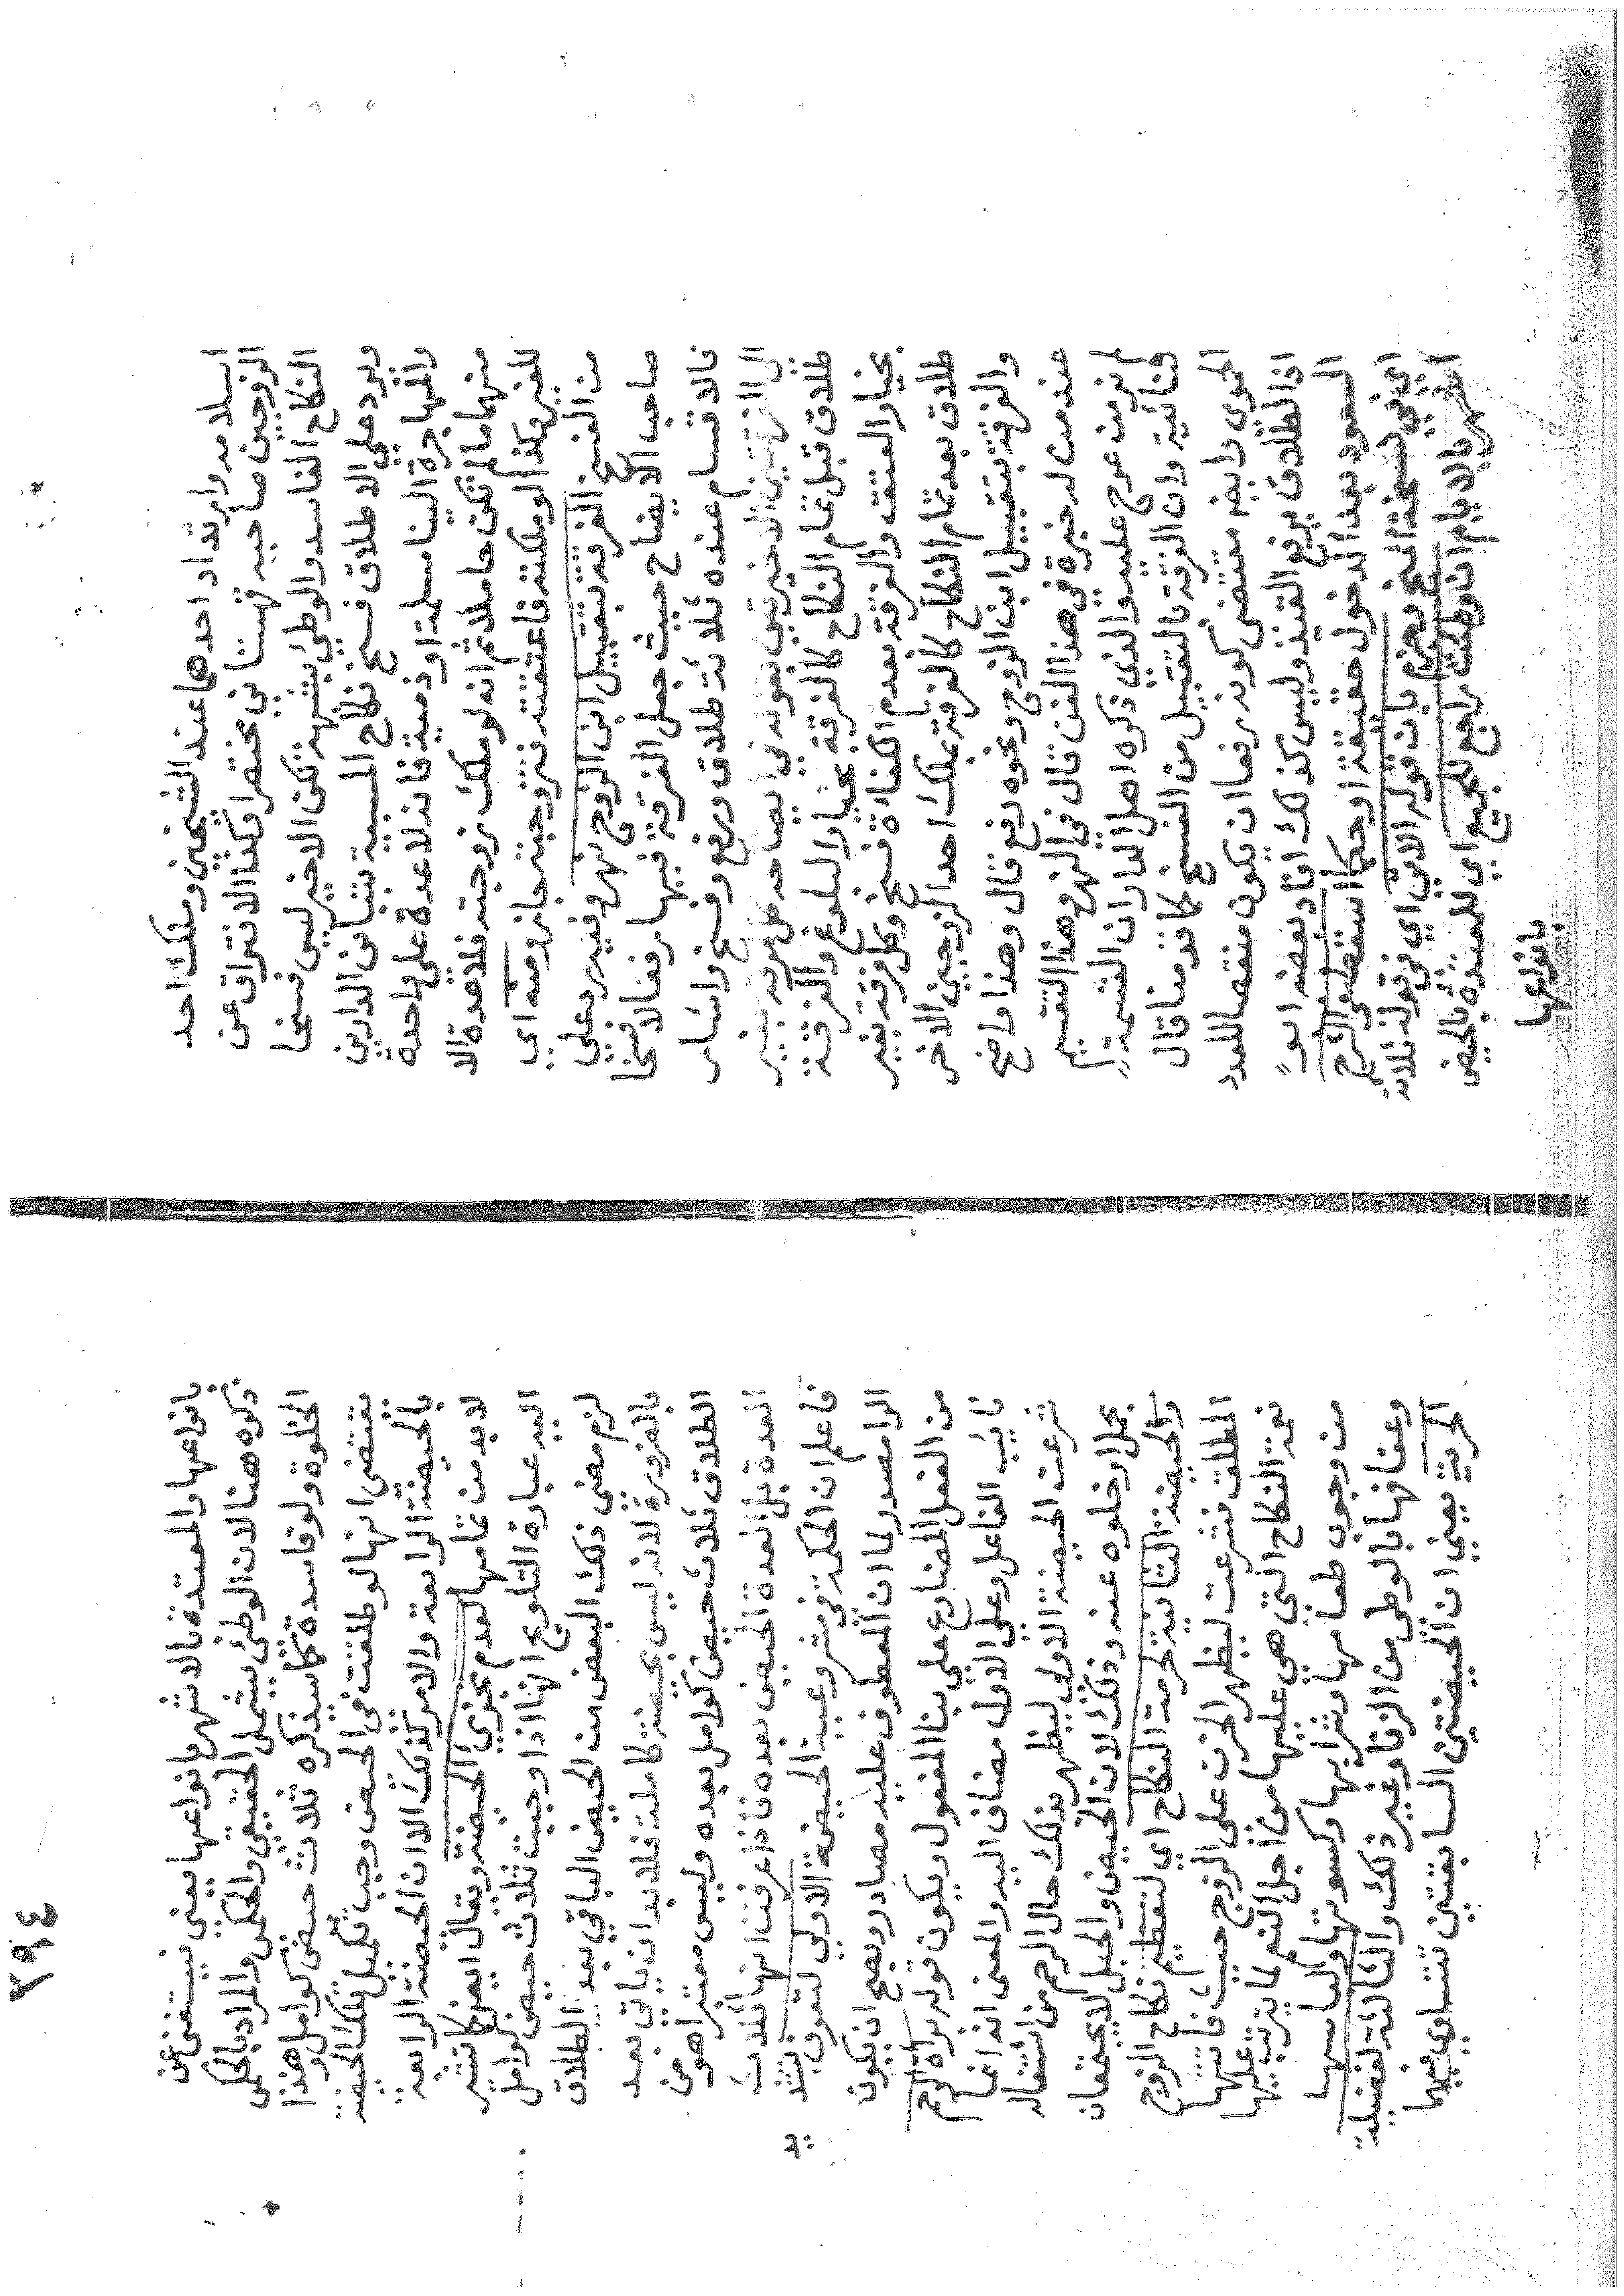 اسلامه وارتداد احدهما عند الشيخين وملك احد
الزوجين صاحبه تهستاني مختصرا وكذا الافتراق عن
النكاح الفاسد والوطئ بشبهة لكن الاخير ليس فسخا
ويرد علي الاطلاق فسخ نكاح المسبية بتباين الدارين
والمهاجرة الينا مسلمة او ذمية فانه لا عدة علي واحدة
منهما ما لم تكن حاملا ثم انه لو ملك زوجته فلا عدة الا
للغير وكذا لو ملكته فاعتقته فتزوجته جاز ومنه اي
من الفسخ الفرقة بتقبيل ابن الزوج نهر وفيه رد علي
صاحب الايضاح حيث جعل الفرقة فيها رفعا لا فسخا
فالاقسام عنده ثلاثة طلاق ورفع وفسخ واشار
الي الفرقتين الاخيرتين بقوله في ايضاحه كل فرقة بغير
طلاق قبل تمام النكاح كالفرقة بخيار البلوغ والفرقة
بخيار العتق والفرقة بعدم الكفاءة فسخ وكل فرقة بغير
طلاق بعد تمام النكاح كالفرقة بملك احد الزوجين الاخر
والفرقة بتقبيل ابن الزوج ونحوه رفع قال وهذا واضح
عند من له خبرة في هذا الفن قال في النهر وهذا التقسيم
لم نر من عرج عليه والذي ذكره اهل الدار ان القسمة
ثنائية وان الفرقة بالتقبيل من الفسخ كما قدمنا قال
الحموي وايضا مقتضي كونه رفعا ان يكون منقصا للعدد
اذ الطلاق يرفع القيد وليس كذلك افاد بعضه ابو
السعود بعد الدخول حقيقة او حكما اسقط الشرح
اي في نسخة المنح وجزم بان قوله الاتي اي في قوله ثلاثة
اشهر بالايام ان وطئت راجع للجميع اي للمعتدة بالحيض
بانواعها
٢٩٤
بانواعها والمعتدة بالاشهر بانواعها يعني فيستغني عن
ذكره هنا لان الوطئ يشمل الحقيقي والحكمي والمراد بالحكمي
الخلوة ولو فاسدة كما سنذكره ثلاث حيض كوامل وهذا
يقتضي انها لو طلقت في الحيض وجب تكميل تلك الحيضة
بالحيضة الرابعة والامر كذلك الا ان الحيضة الرابعة
لا بد من تمامها لعدم تجزي الحيضة ويقال ايضا كما تشير
اليه عبارة التلويح انها اذا وجبت ثلاث حيض كوامل
لزم مضي ذلك البعض من الحيض الباقي بعد الطلاق
بالضرورة لانه ليس بحيضة كاملة فلا بد ان ياتي بعد
الطلاق ثلاث حيض كوامل بعده وليس معتبرا هو من
العدة بل العدة الحيض بعده فاذا عرفت انها ثلاث
فاعلم ان الحكمة في مشروعية الحيضة الاولي لتعرف
الرا مصدر لما ان المعطوف عليه مصادر ويصح ان يكون
من الفعل المضارع علي بنا المفعول ويكون قوله براة الرحم
نايب الفاعل وعلي الاول مضاف اليه والمعني انه انما
شرعت الحيضة الاولي ليظهر بذلك حال الرحم من اشتغاله
بحمل او خلوه عنه وذلك لان الحيض والحبل لا يجتمعان
والحيضة الثانية لحرمة النكاح اي لتعظيم نكاح الزوج
المطلق فشرعت ليظهر الحزن علي الزوج حيث فاتتها
نعمة النكاح التي هي عليها من اجل النعم لما يترتب عليها
من وجوب طعامها وشرابها وكسوتها ولباسها
وعفافها بالوطي من الزنا وغير ذلك والثالثة لفضيلة
الحرية يعني ان الحيضتين السابقتين تتساوي فيهما